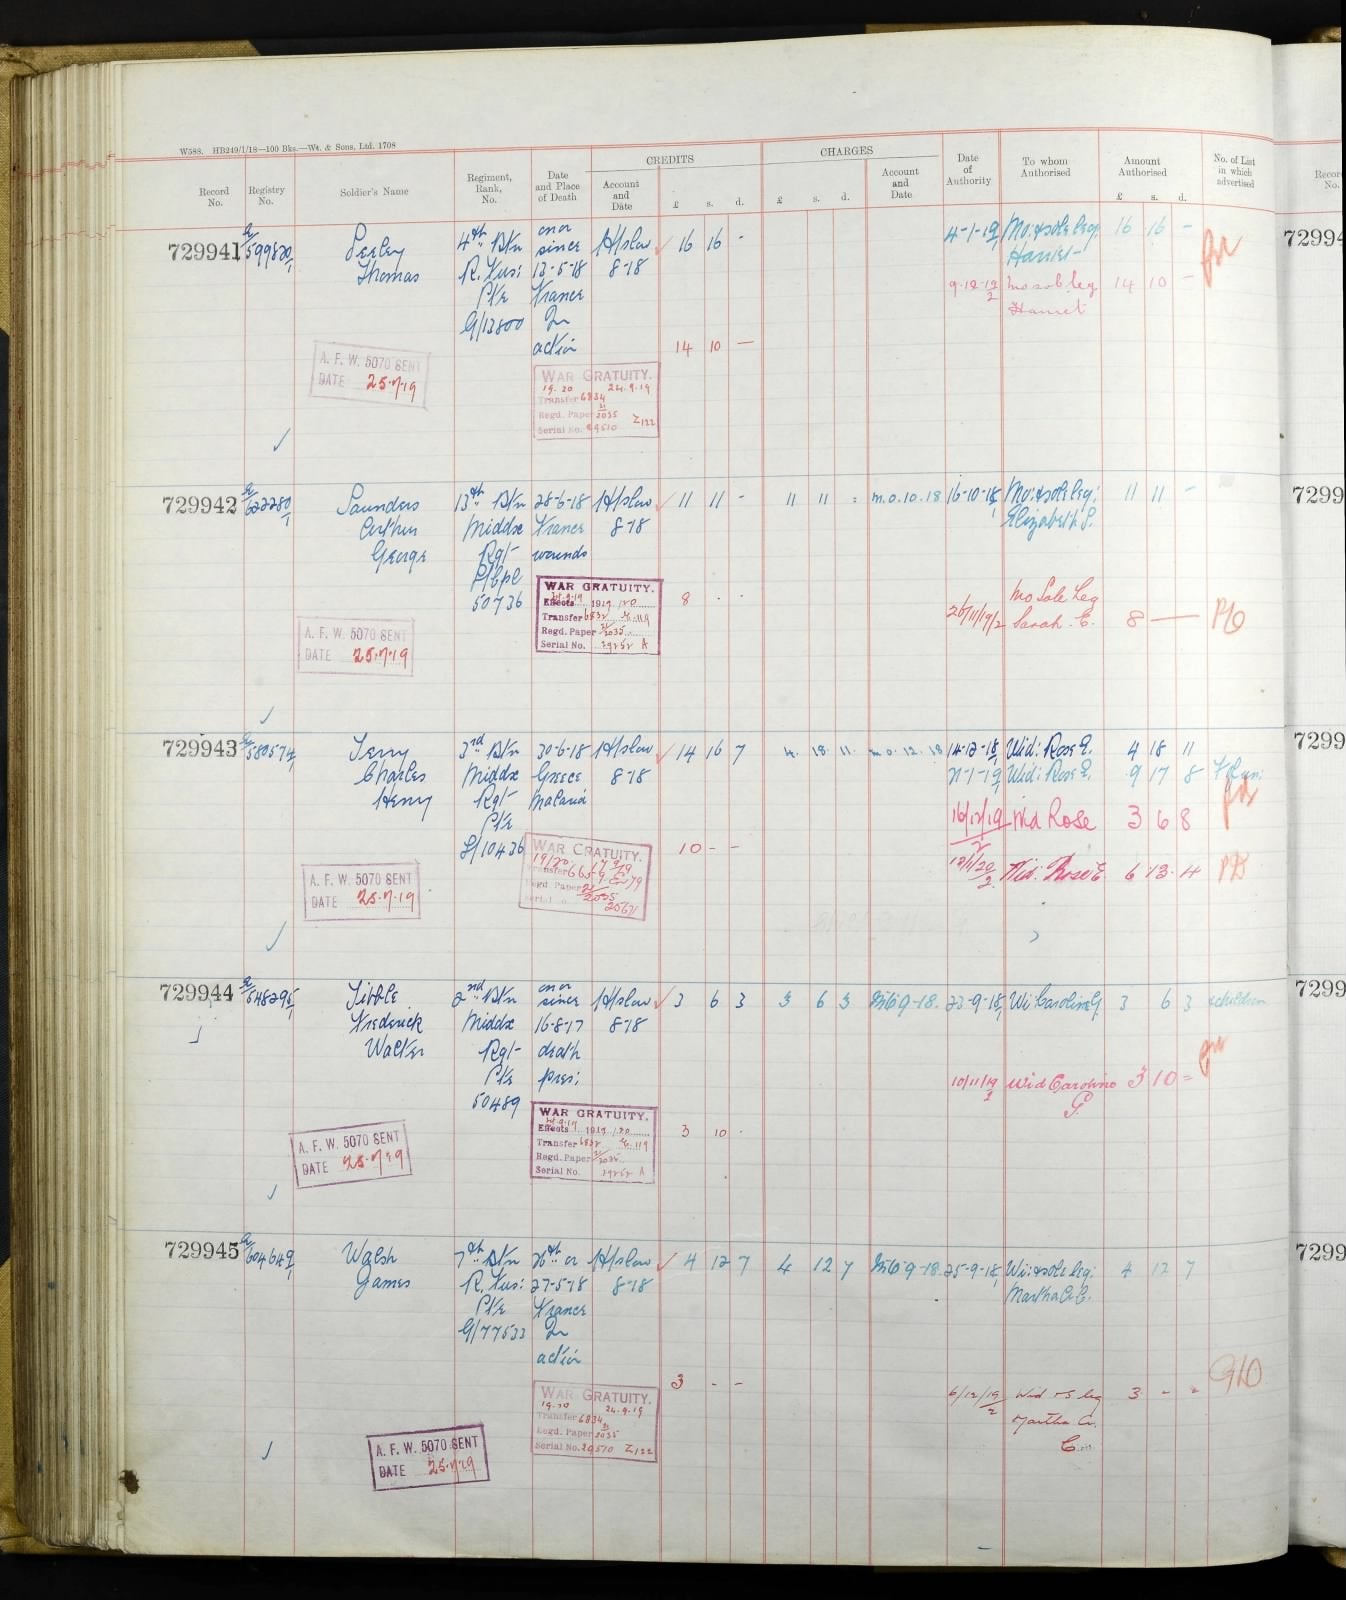 W588. HB249/1/18—100 Bks.—Wt. & Sons, Ltd. 1708
Record No.
Registry No.
Soldier's Name
Regiment, Rank, No.
Date and Place of Death
CREDITS
Account and Date
£ s. d.
CHARGES
£ s. d.
Account and Date
Date of Authority
To whom Authorised
Amount Authorised
£ s. d.
No. of List in which advertised
Record No.
729941
599820/1
Thomas
4th Btn
R. Fus:
Pte
G/13800
on or
since
France
In
action
H/slow
8-18
16 16 -
4-1-19
Mo: & sole leg:
Harriet
16 16 -
9-12-19/2
Mo sole leg
Harriet
14 10 -
14 10 —
A. F. W. 5070 SENT
DATE 25.7.19
WAR GRATUITY.
19.20 24.9.19
Transfer 6834
Regd. Paper 21/2035
Serial No. Z122
729942
622280/1
Saunders
Arthur
George
13th Btn
Middx
Rgt
50736
28-6-18
France
wounds
H/slow
8-18
11 11 -
11 11 -
M.O. 10. 18
16-10-18/1
Mo: & sole leg:
Elizabeth S.
11 11 -
WAR GRATUITY.
Effects 1919/20
Transfer 6832 E.119
Regd. Paper 21/2035
Serial No. A
8 . .
26/11/19/2
Mo Sole Leg
Sarah. E.
8 —
A. F. W. 5070 SENT
DATE 25.7.19
729943
580574/1
Terry
Charles
Henry
3rd Btn
Middx
Rgt
Pte
L/10436
30-6-18
Greece
Malaria
H/slow
8-18
14 16 7
4. 18 11.
M.O. 12. 18
14-12-18/1
Wid: Rose E.
4 18 11
21-1-19/1
Wid: Rose E.
9 17 8
16/12/19/2
Wid Rose
3 6 8
Wid. Rose E
6 13 4
10 - -
WAR GRATUITY.
19/20
Transfer
Regd. Paper 21/2035
A. F. W. 5070 SENT
DATE 25.7.19
729944
648295/1
Tibble
Frederick
Walter
2nd Btn
Middx
Rgt
Pte
50489
on or
since
16-8-17
death
pres:
H/slow
8-18
3 6 3
3 6 3
9-18.
23-9-18/1
Wi: Caroline G
3 6 3
& children
10/11/19/2
Wid Caroline
G.
3 10 =
WAR GRATUITY.
Effects 1919/20
Transfer 6832 E.119
Regd. Paper 21/2035
Serial No. A
3 10 .
A. F. W. 5070 SENT
DATE 25.7.19
729945
604649/1
Walsh
James
7th Btn
R. Fus:
Pte
G/77533
26th or
27-5-18
France
In
action
H/slow
8-18
4 12 7
4 12 7
9-18.
25-9-18/1
Wi: & sole leg:
Martha A. C.
4 12 7
3 - -
6/12/19/2
Wid & S leg
Martha A.
C.
3 - -
WAR GRATUITY.
19.20 24.9.19
Transfer 6834
Regd. Paper 21/2035
Serial No. 29510 Z122
A. F. W. 5070 SENT
DATE 25.7.19